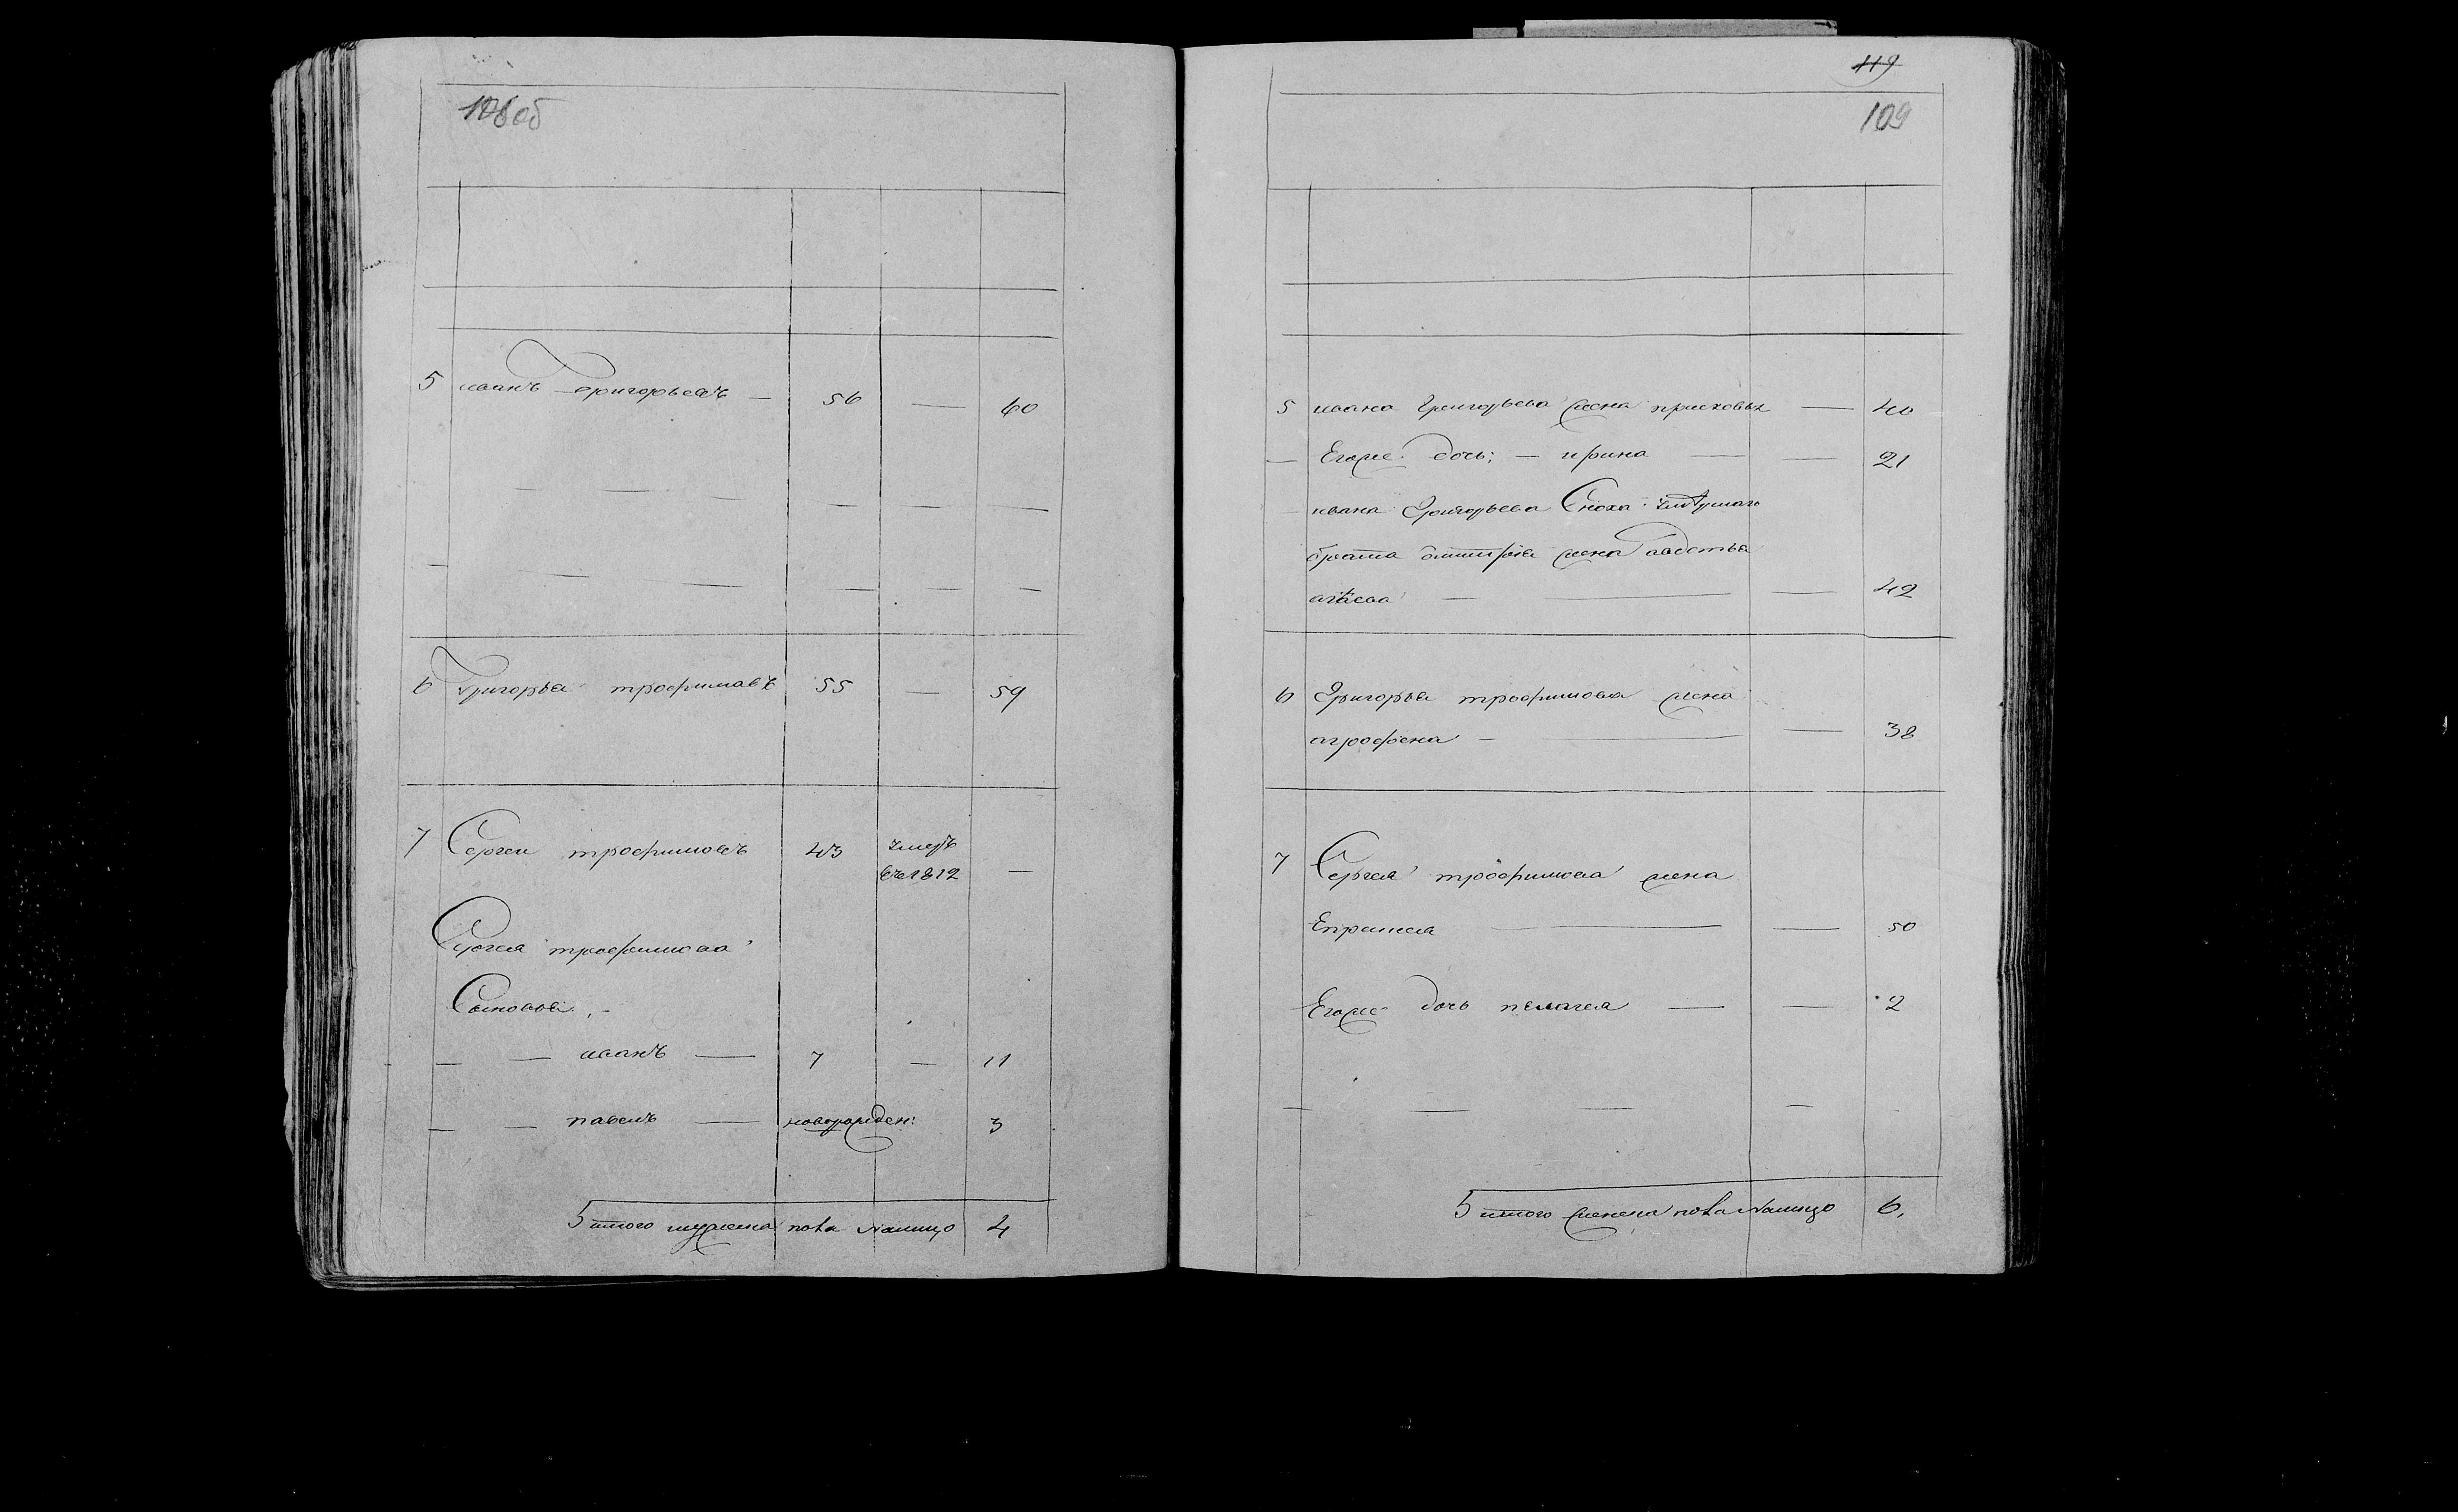 108об
5 иванъ Григорьевъ — 56 — 60
6 Григорьи трофимавъ 55 — 59
7 Сергеи трофимовъ 43 умеръ
въ 1812 —
Сергея трофимова
Сыновья. -
— — иванъ — 7 — 11
— — павелъ — новорожден: 3
итого мужеска пола Налицо 4
119
109
5 ивана Григорьева жена — 40
— Егоже дочь; — ирина — — 21
ивана Григорьева Сноха умершаго
брата жена
— — — 42
6 Григорья трофимова жена
аграфена — — — 38
7 Сергея трофимова жена
— — 50
Егоже дочь пелагея — — 2
итого женска пола Налицо 6.